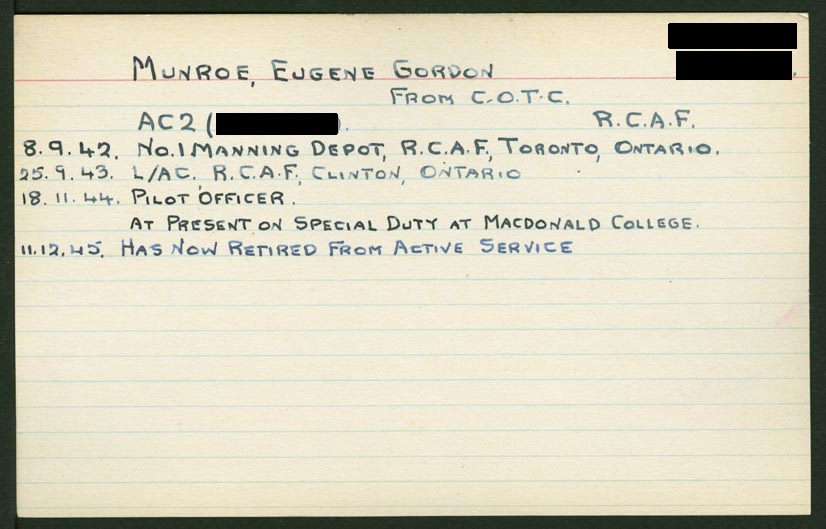 MUNROE, EUGENE GORDON
FROM C.O.T.C.
AC2 ( ). R.C.A.F.
8.9.42. NO.1 MANNING DEPOT, R.C.A.F, TORONTO, ONTARIO.
25.9.43. L/AC. R.C.A.F, CLINTON, ONTARIO
18.11.44. PILOT OFFICER.
AT PRESENT ON SPECIAL DUTY AT MACDONALD COLLEGE.
11.12.45. HAS NOW RETIRED FROM ACTIVE SERVICE